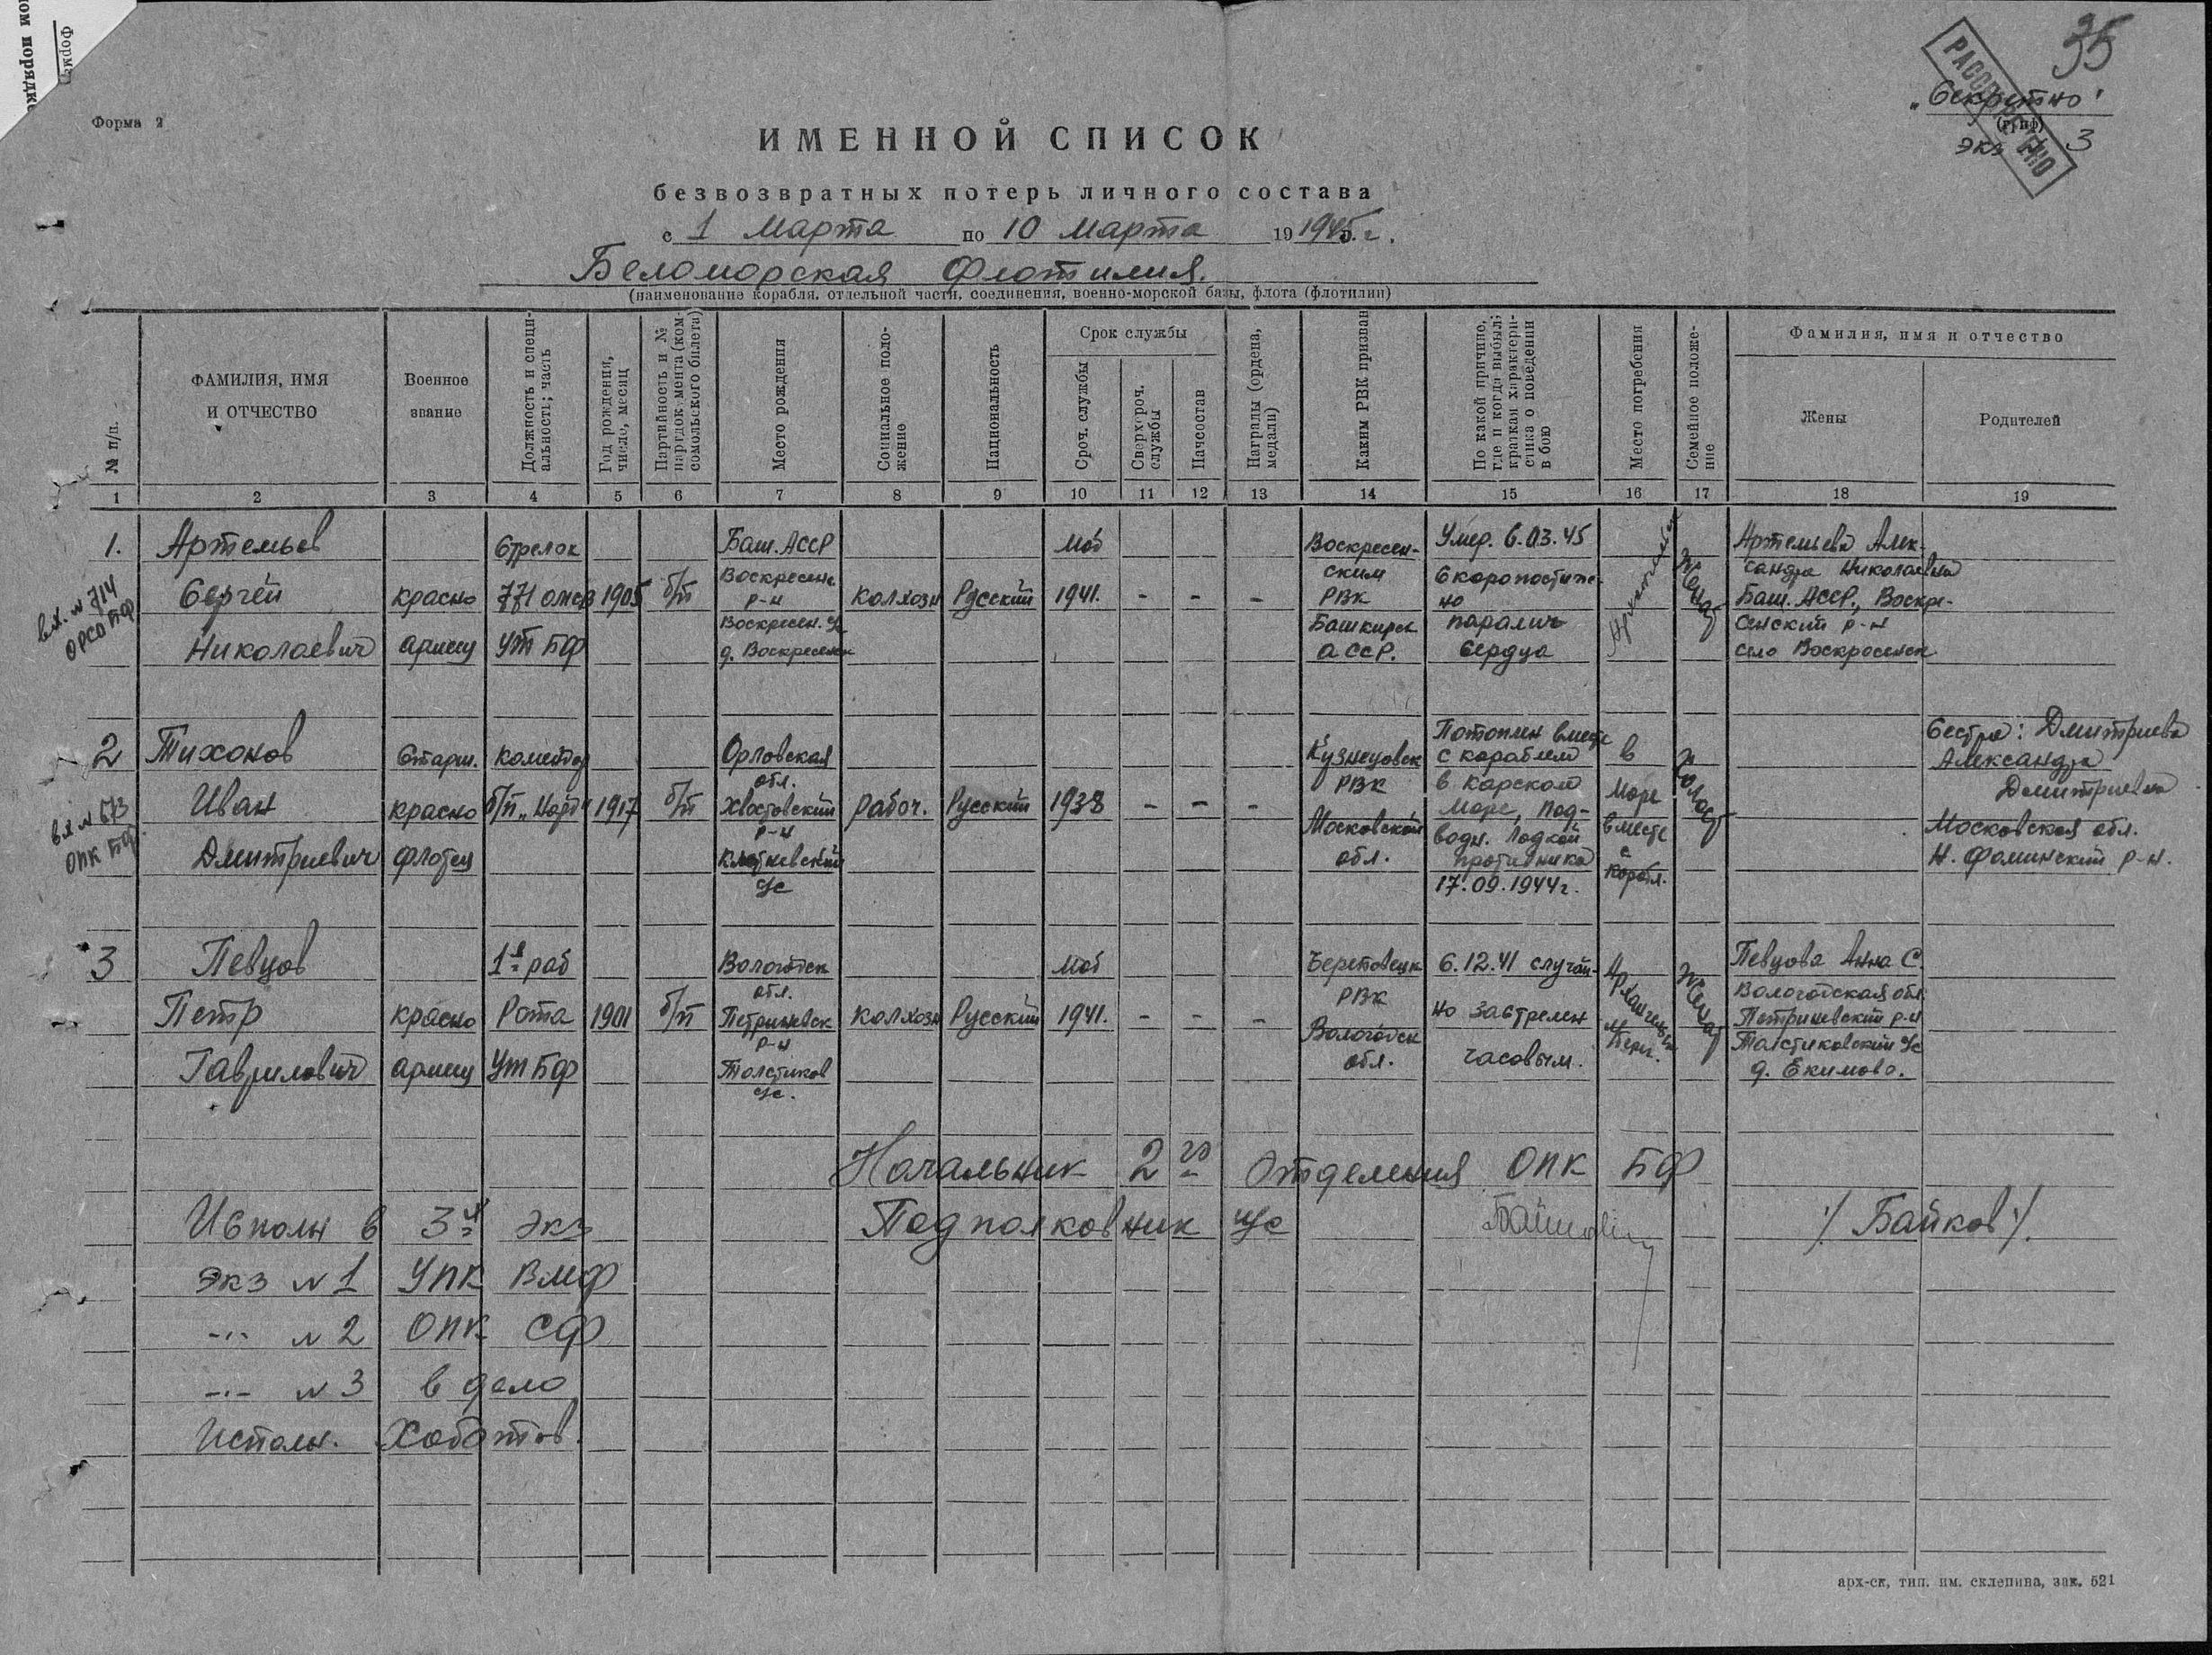 35
„Секретно"
(гриф)
экз № 3
РАССЕКРЕЧЕНО
Форма 2
ИМЕННОЙ СПИСОК
безвозвратных потерь личного состава
с 1 Марта по 10 Марта 19 1945 г.
Беломорская Флотилия.
(наименование корабля, отдельной части, соединения, военно-морской базы, флота (флотилии)
№ п/п.
ФАМИЛИЯ, ИМЯ И ОТЧЕСТВО
Военное звание
Должность и специальность; часть
Год рождения, число, месяц
Партийность и № партдокумента (комсомольского билета)
Место рождения
Социальное положение
Национальность
Срок службы
Сроч. службы
Сверхсроч. службы
Начсостав
Награды (ордена, медали)
Каким РВК призван
По какой причине, где и когда выбыл; краткая характеристика о поведении в бою
Место погребения
Семейное положение
Фамилия, имя и отчество
Жены
Родителей
1 2 3 4 5 6 7 8 9 10 11 12 13 14 15 16 17 18 19
вх. № 714
ОРСО БФ
1. Артемьев Сергей Николаевич
красно армеец
Стрелок 771 УТ БФ
1905
б/п
Баш. АССР Воскресенс. р-н Воскресен. с/с д. Воскресенск
колхозн
Русский
Моб 1941. - - -
Воскресенским РВК Башкирск АССР.
Умер. 6.03.45 Скоропостижно паралич Сердца
Женат
Артемьева Александра Николаевна
Баш. АССР., Воскресенский р-н
село Воскресенск
вх № 573
ОПК БФ.
2 Тихонов Иван Дмитриевич
Старш. красно флотец
комендор б/п „Норд"
1917
б/п
Орловская обл. Хвостовский р-н с/с
рабоч.
Русский
1938 - - -
Кузнецовск РВК Московской обл.
Потоплен вместе с кораблем в Карском Море, подводн. лодкой противника 17.09.1944г.
в Море вместе с корабл.
Холост
Сестра: Дмитриева Александра Дмитриевна
Московская обл.
Н. Фоминский р-н.
3 Певцов Петр Гаврилович
красно армеец
1я раб Рота УТ БФ
1901
б/п
Вологодск обл. Петриневск р-н Толстиков с/с.
колхозн
Русский
Моб 1941. - - -
Череповецк РВК Вологодск обл.
6.12.41 случайно застрелен часовым.
Женат
Певцова Анна С.
Вологодская обл
Петриневский р-н
Толстиковский с/с
д. Екимово.
Начальник 2го Отделения ОПК БФ
Подполковник и/с /Байков/.
Исполн в 3х экз
Экз № 1 УПК ВМФ
-"- № 2 ОПК СФ
-"- № 3 в дело
Исполн. Хоботов.
арх-ск, тип. им. склепина, зак. 521